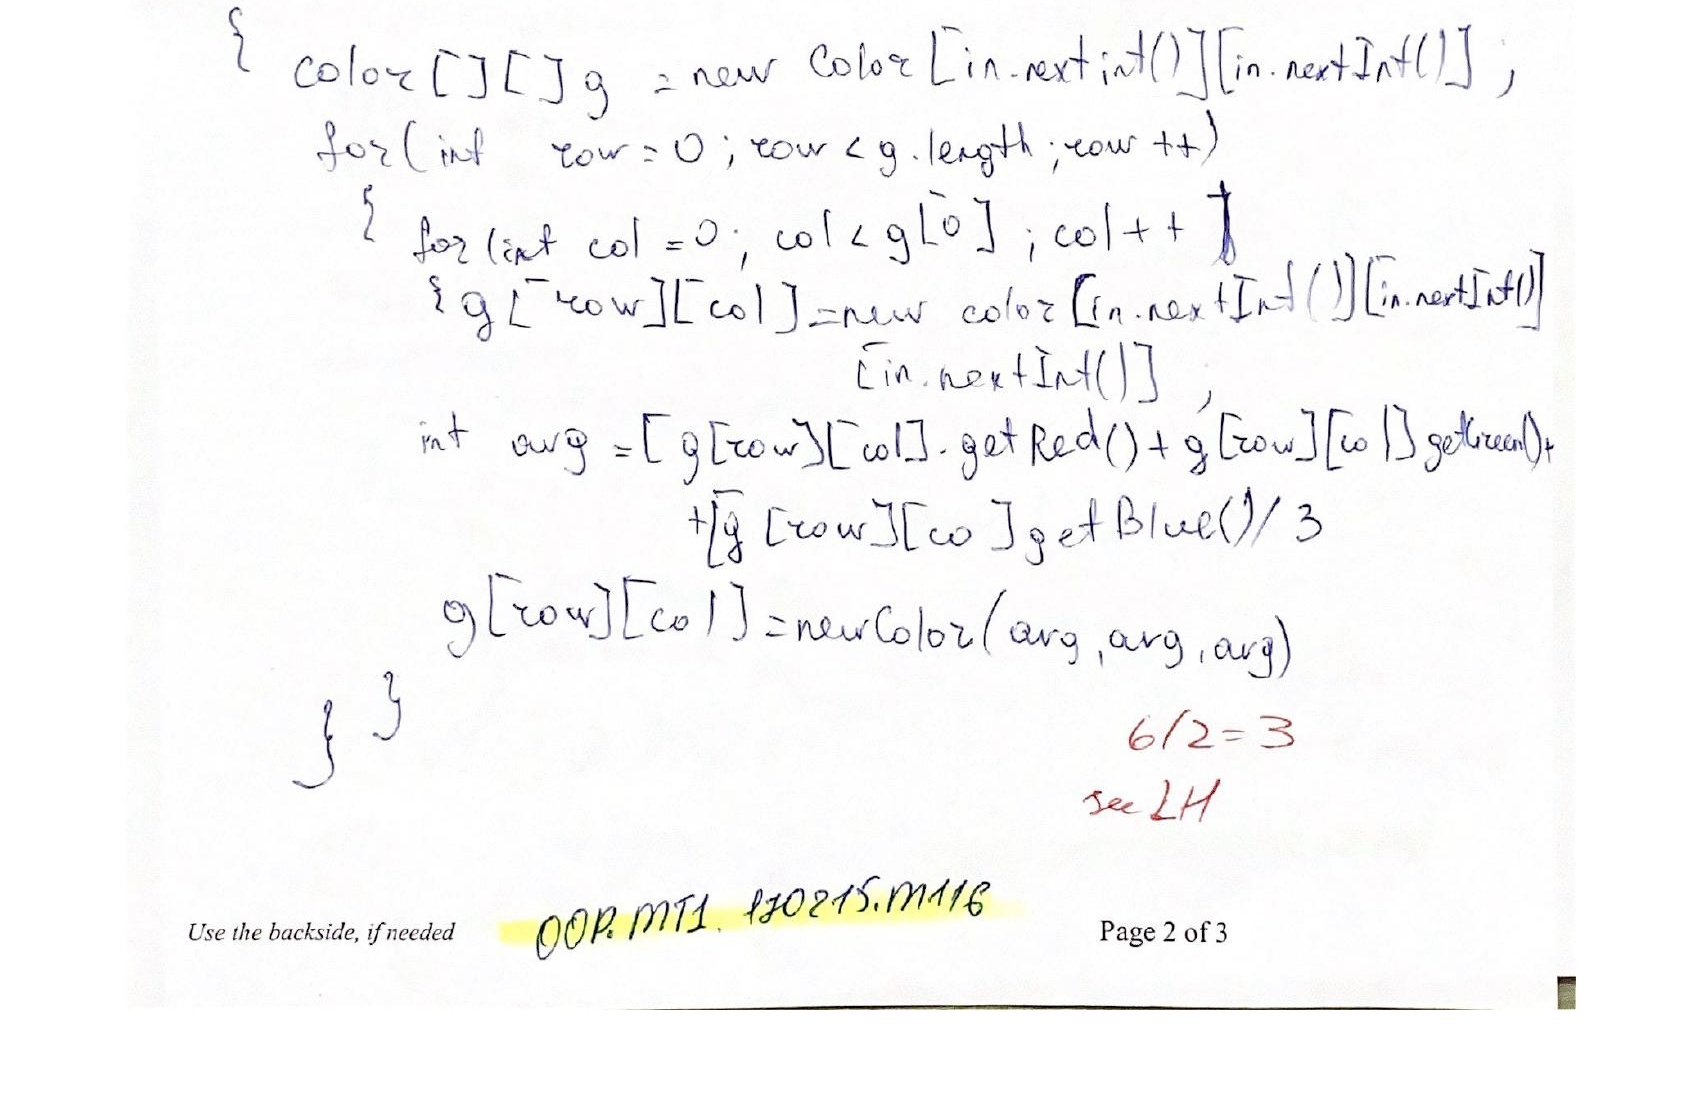 { color [ ] [ ] g = new Color [in.nextint()][in.nextInt()] ;
for(int row = 0 ; row < g.length ; row ++)
{ for (int col = 0 ; col < g[0] ; col++ ]
{ g [row][col] = new color [in.nextInt()][in.nextInt()]
[in.nextInt()] ;
int avg = [ g[row][col].getRed() + g[row][col] getGreen()+
+[g [row][co ] getBlue()/ 3
g[row][col] = newColor(avg, avg, avg)
} }
6/2=3
see LH
Use the backside, if needed OOP. MT1. 170215.M116 Page 2 of 3